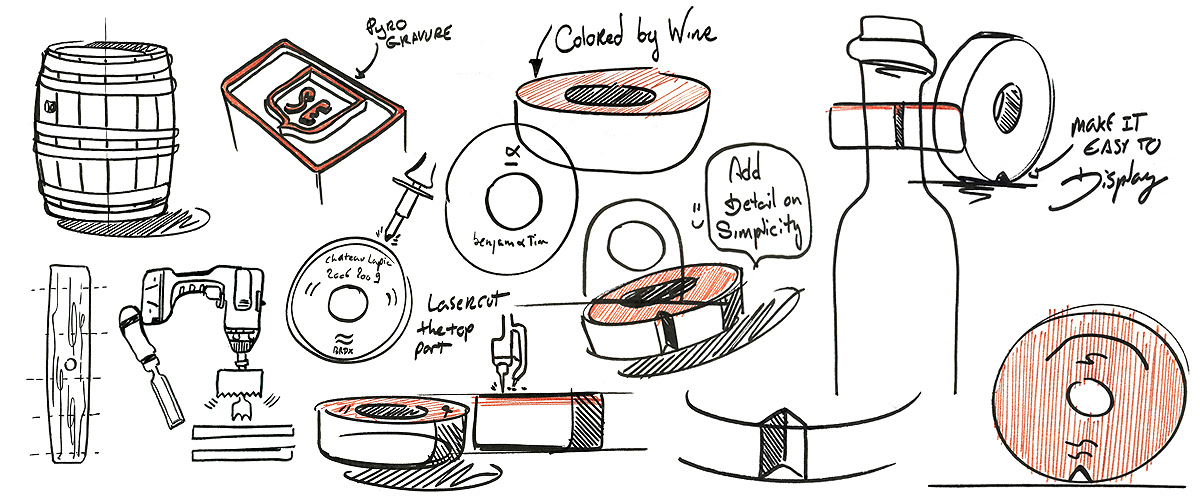 PYRO
GRAVURE
SE
Colored by Wine
benjam & Tim
Chateau Lapie
2006 2009
BRDX
Lasercut
the top
part
Add
Detail on
Simplicity
MAKE IT
EASY TO
Display